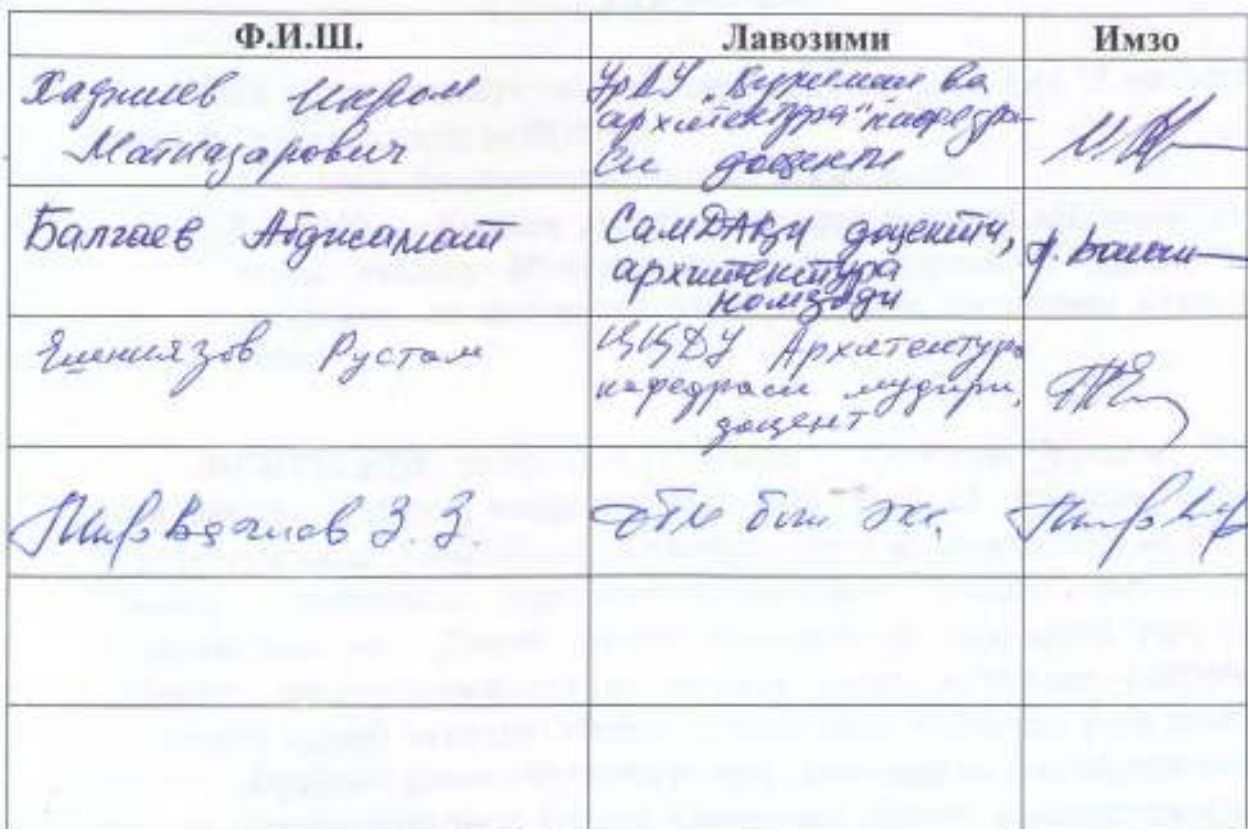 Ф.И.Ш. Лавозими Имзо
Хаджиев Икром
Матназарович
УрДУ „Қурилиш ва
архитектура" кафедра-
си доценти
Балгаев Абдисамат
СамДАҚИ доценти,
архитектура
номзоди
Елениязов Рустам
ҚҚДУ Архитектура
кафедраси мудири,
доцент
З.З.
бош